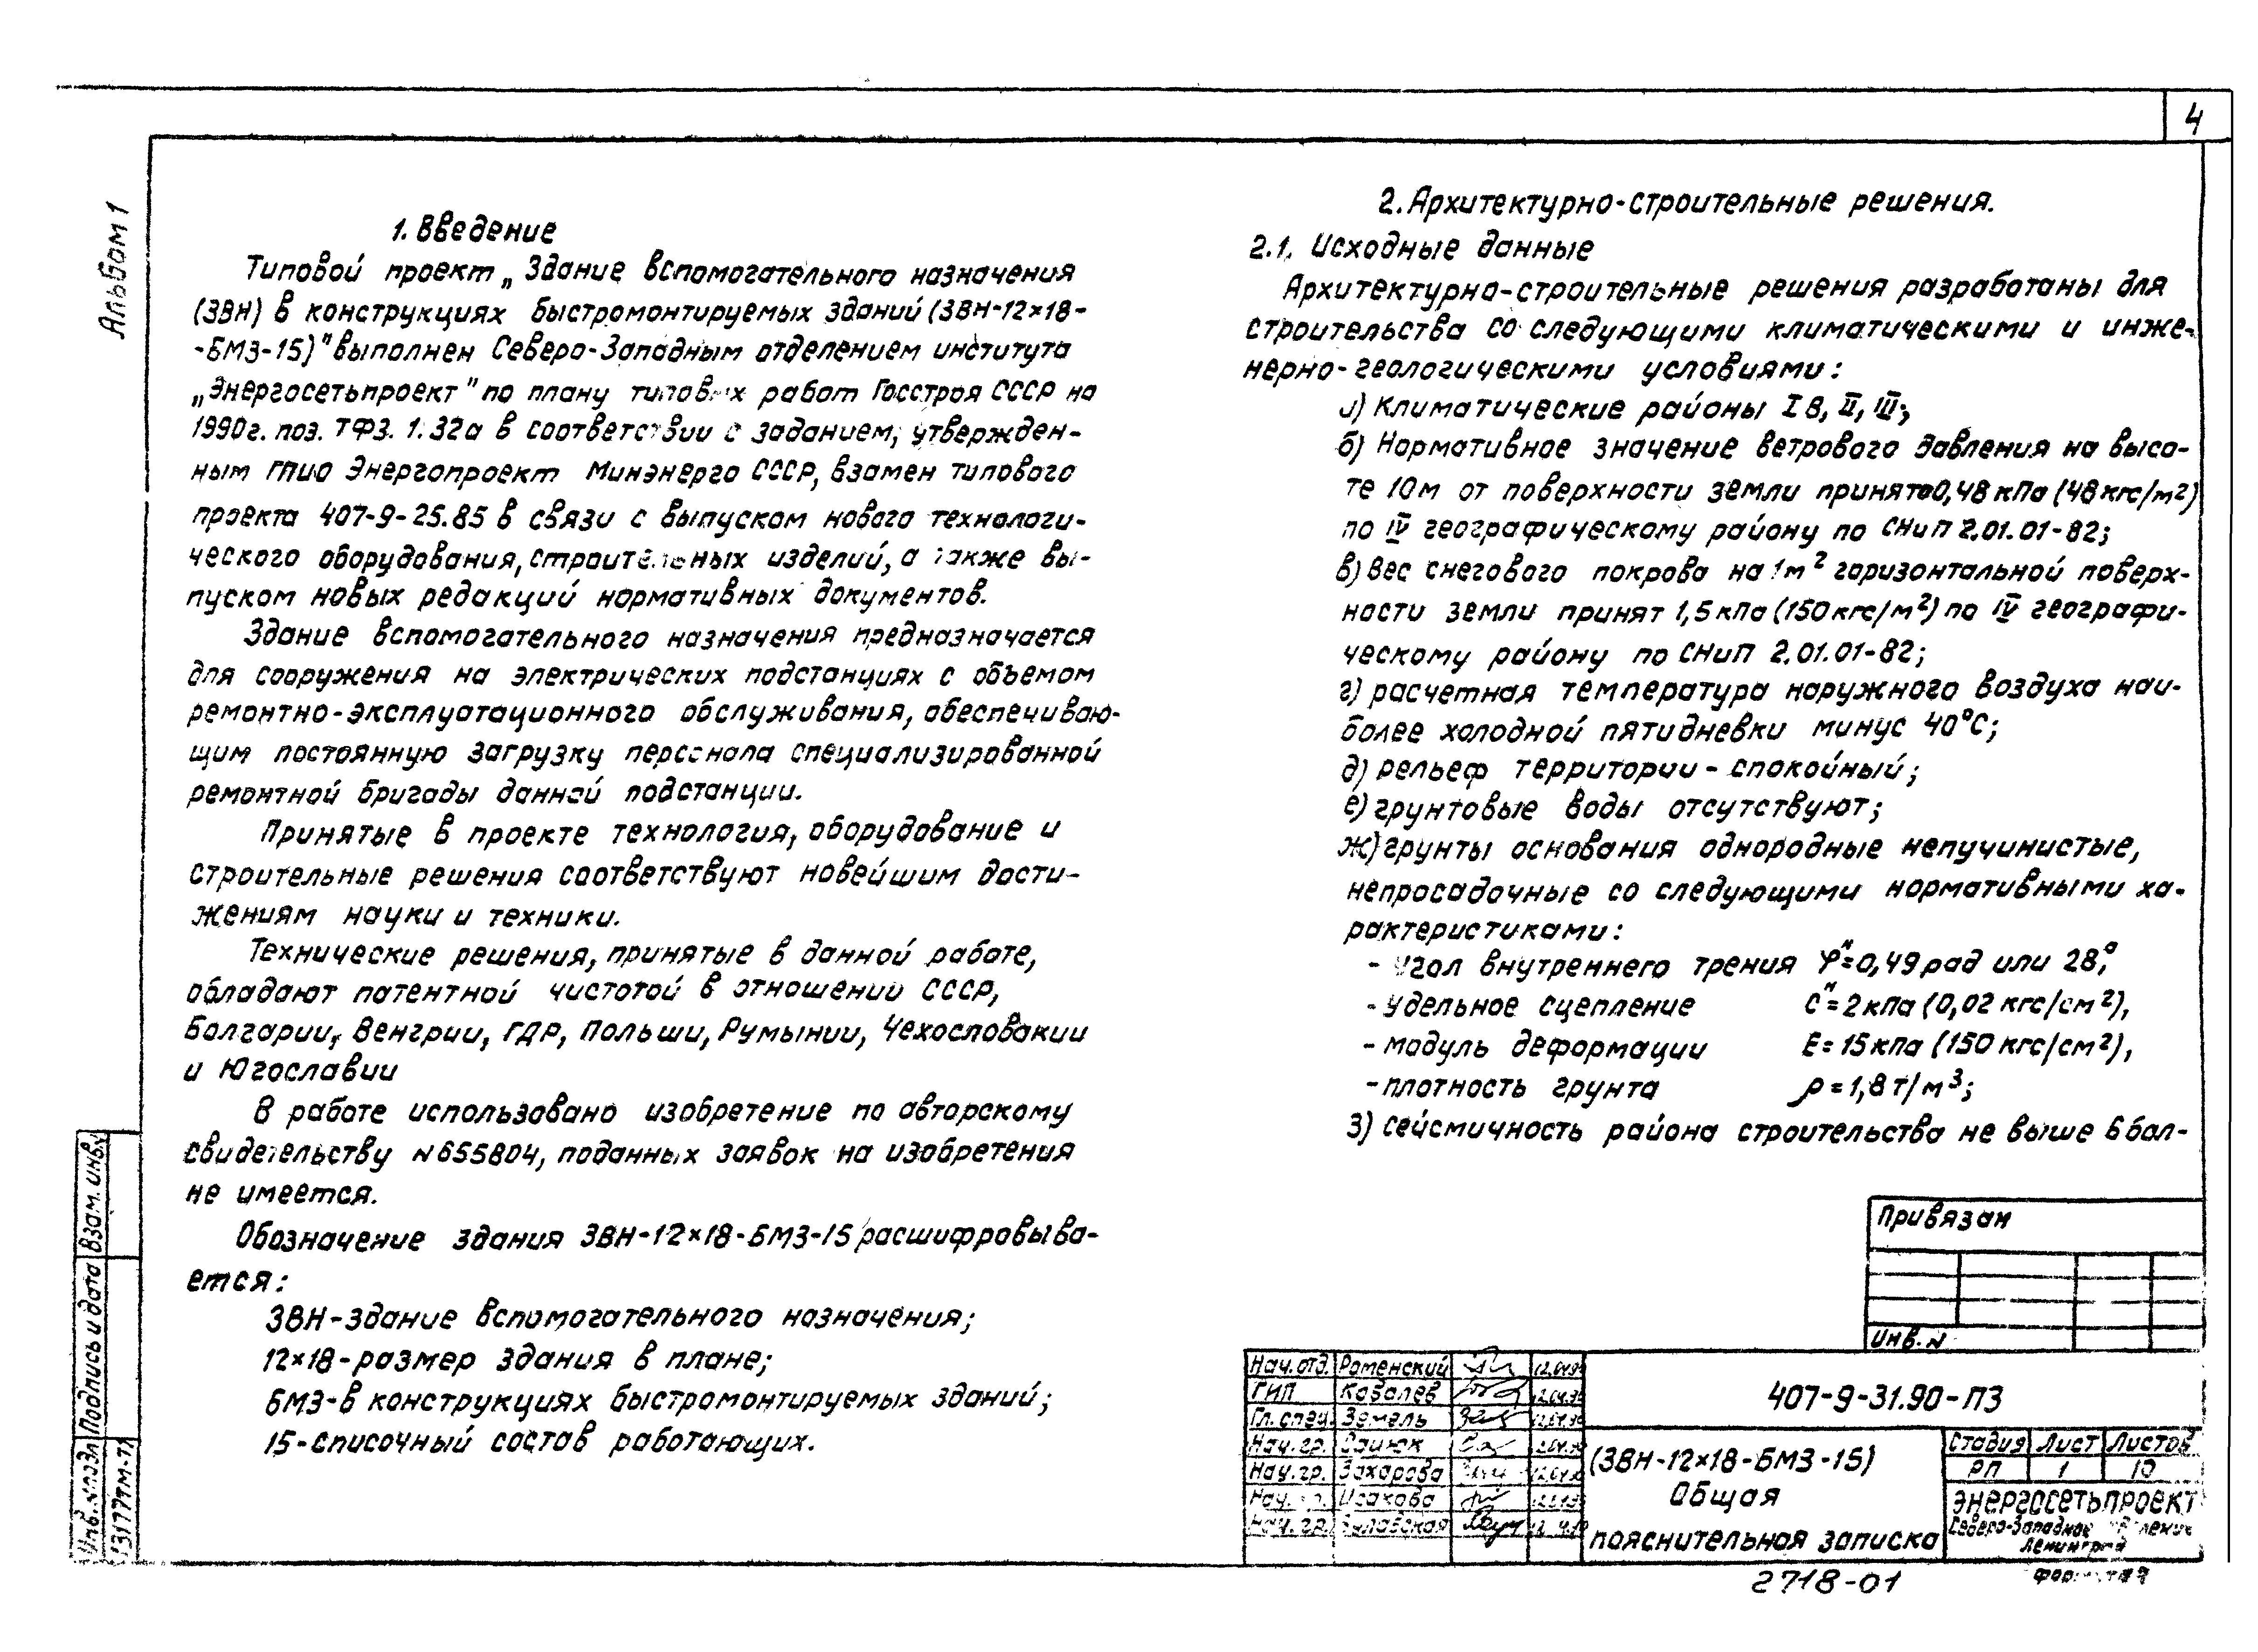 4
Альбом 1
1. Введение
Типовой проект „Здание вспомогательного назначения
(ЗВН) в конструкциях быстромонтируемых зданий (ЗВН-12×18-
-БМЗ-15)" выполнен Северо-Западным отделением института
„Энергосетьпроект" по плану типовых работ Госстроя СССР на
1990г. поз. ТФ3. 1.32а в соответствии с заданием, утвержден-
ным ГПИО Энергопроект Минэнерго СССР, взамен типового
проекта 407-9-25.85 в связи с выпуском нового технологи-
ческого оборудования, строительных изделий, а также вы-
пуском новых редакций нормативных документов.
Здание вспомогательного назначения предназначается
для сооружения на электрических подстанциях с объемом
ремонтно-эксплуатационного обслуживания, обеспечиваю-
щим постоянную загрузку персонала специализированной
ремонтной бригады данной подстанции.
Принятые в проекте технология, оборудование и
строительные решения соответствуют новейшим дости-
жениям науки и техники.
Технические решения, принятые в данной работе,
обладают патентной чистотой в отношении СССР,
Болгарии, Венгрии, ГДР, Польши, Румынии, Чехословакии
и Югославии
В работе использовано изобретение по авторскому
свидетельству N655804, поданных заявок на изобретения
не имеется.
Обозначение здания ЗВН-12×18-БМЗ-15 расшифровыва-
ется:
ЗВН-здание вспомогательного назначения;
12×18-размер здания в плане;
БМЗ-в конструкциях быстромонтируемых зданий;
15-списочный состав работающих.
2. Архитектурно-строительные решения.
2.1. Исходные данные
Архитектурно-строительные решения разработаны для
строительства со следующими климатическими и инже-
нерно-геологическими условиями:
а) Климатические районы I В, II, III;
б) Нормативное значение ветрового давления на высо-
те 10м от поверхности земли принято 0,48 кПа (48 кгс/м²)
по IV географическому району по СНиП 2.01.01-82;
в) Вес снегового покрова на 1м² горизонтальной поверх-
ности земли принят 1,5 кПа (150 кгс/м²) по IV географи-
ческому району по СНиП 2.01.01-82;
г) расчетная температура наружного воздуха наи-
более холодной пятидневки минус 40°С;
д) рельеф территории - спокойный;
е) грунтовые воды отсутствуют;
ж) грунты основания однородные непучинистые,
непросадочные со следующими нормативными ха-
рактеристиками:
- угол внутреннего трения φᴴ=0,49 рад или 28°,
- удельное сцепление Сᴴ=2 кПа (0,02 кгс/см²),
- модуль деформации Е=15 кПа (150 кгс/см²),
- плотность грунта ρ=1,8 т/м³;
з) сейсмичность района строительства не выше 6 бал-
Привязан
Инв. N
Нач. отд. Роменский
ГИП Ковалев
Гл. спец. Земель
Нач. гр.
Нач. гр. Захарова
Нач. Исакова
Нач. гр.
407-9-31.90-ПЗ
(ЗВН-12×18-БМЗ-15)
Общая
пояснительная записка
Стадия Лист Листов
РП 1 10
ЭНЕРГОСЕТЬПРОЕКТ
Северо-Западное
Ленинград
2718-01
Взам. инв.N
Подпись и дата
Инв. N подл
13177тм-т1